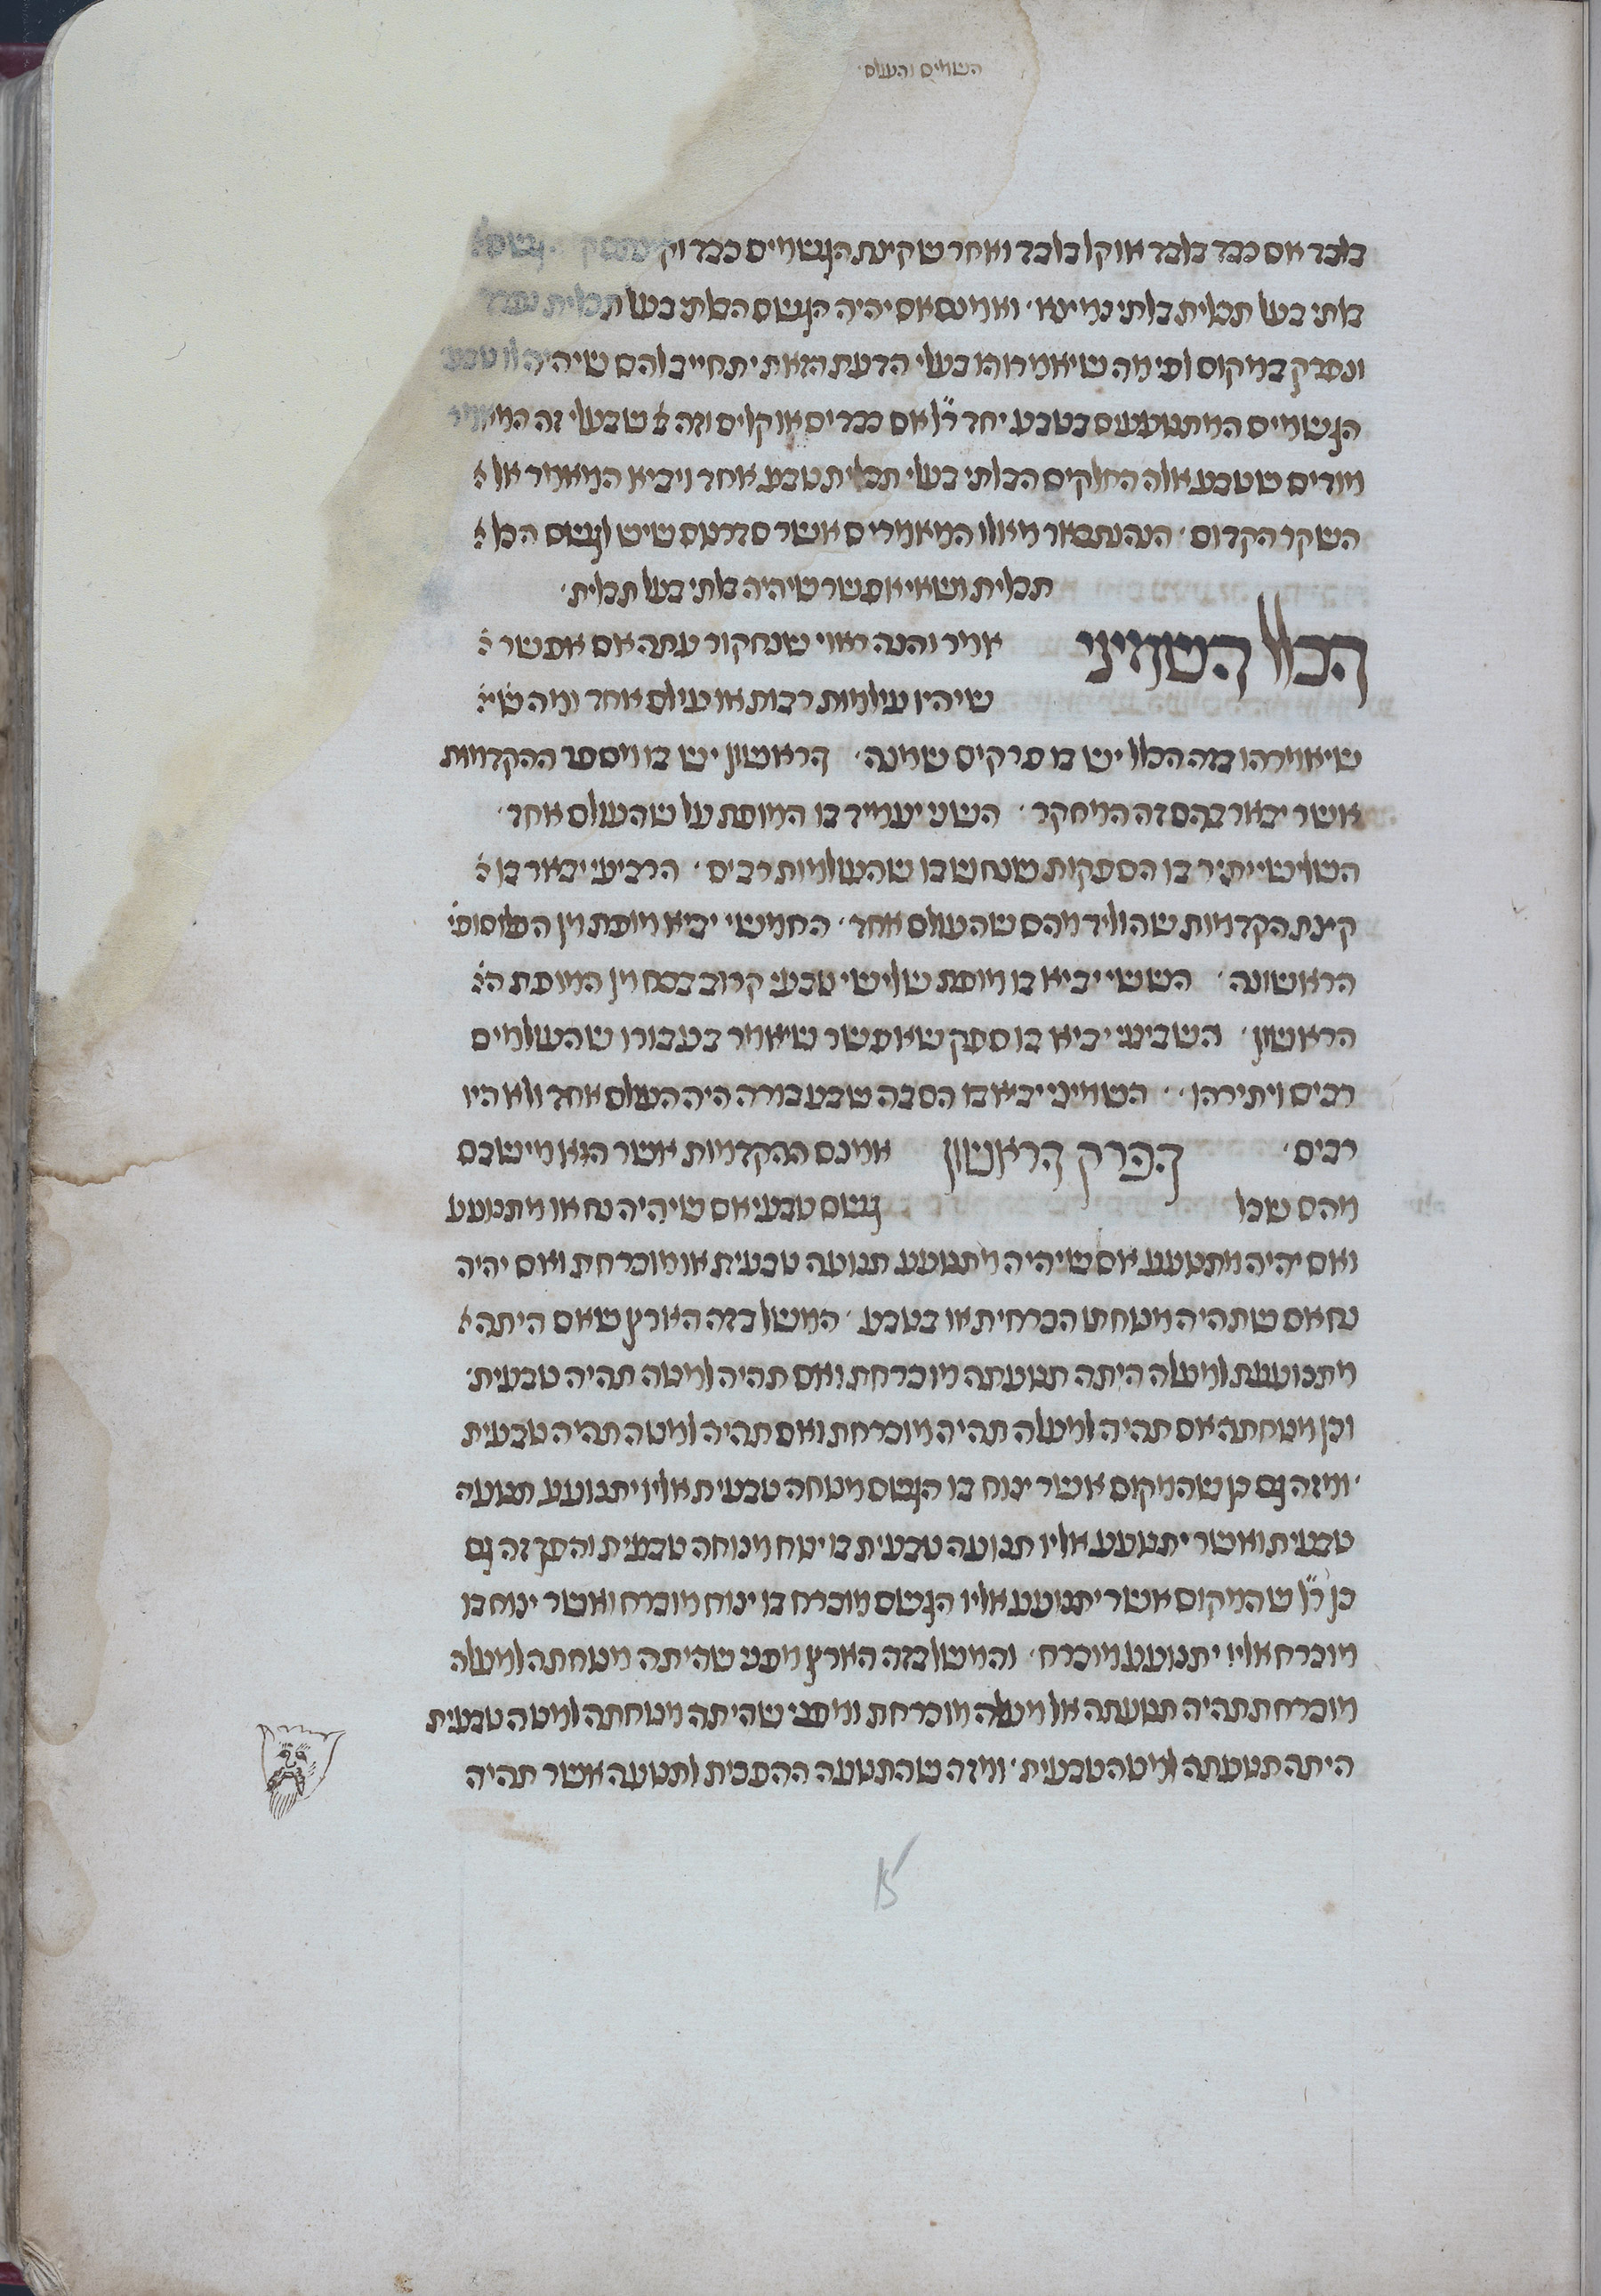 השמים והעולם
בלבד אם כבד בלבד או קל בלבד ואחר שקצת הגשמים כבד וקצתם
בלתי בעל תכלית בלתי נמצא. ואמנם אם יהיה הגשם הבלתי בעל תכלית נפרד
ונפרק במקום לפי מה שיאמרוהו בעלי הדעת הזאת יתחייב להם שיהיה לו טבע
הגשמים המתנועעים בטבע יחד ר״ל אם כבדים או קלים וזה שבעלי זה המאמר
מודים שטבע אלה החלקים הבלתי בעלי תכלית טבע אחד ויביא המאמר אל
השקר הקדום. הנה נתבאר מאלו המאמרים אשר סדרנום שיש לגשם הכל
תכלית ושאי אפשר שיהיה בלתי בעל תכלית.
הכלל השמיני
אמר והנה ראוי שנחקור עתה אם אפשר
שיהיו עולמות רבות או עולם אחד ומה שי
שיאמרהו בזה הכלל יש בו פרקים שמנה. הראשון יש בו מספר ההקדמות
אשר יבאר בהם זה המחקר. השני יעמיד בו המופת על שהעולם אחד.
השלישי יתיר בו הספקות שנחשבו שהעולמות רבים. הרביעי יבאר בו
קצת הקדמות שהוליד מהם שהעולם אחד. החמשי יביא מופת מן הפלוסופי
הראשונה. הששי יביא בו מופת שלישי טבעי קרוב בכח מן המופת ה
הראשון. השביעי יביא בו ספק שאפשר שיאמר בעבורו שהעולמים
רבים ויתירהו. השמיני יביא בו הסבה שבעבורה היה העולם אחד ולא היו
רבים. הפרק הראשון אמנם ההקדמות אשר הוא מישבם
מהם שכל גשם טבעי אם שיהיה נח או מתנועע
ואם יהיה מתנועע אם שיהיה מתנועע תנועה טבעית או מוכרחת ואם יהיה
נח אם שתהיה מנוחתו הכרחית או בטבע. המשל בזה הארץ שאם היתה
מתנועעת למעלה היתה תנועתה מוכרחת ואם תהיה למטה תהיה טבעית.
וכן מנוחתה אם תהיה למעלה תהיה מוכרחת ואם תהיה למטה תהיה טבעית
. ומזה גם כן שהמקום אשר ינוח בו הגשם מנוחה טבעית אליו יתנועע תנועה
טבעית ואשר יתנועע אליו תנועה טבעית בו ינוח מנוחה טבעית והפך זה גם
כן ר״ל שהמקום אשר יתנועע אליו הגשם מוכרח בו ינוח מוכרח ואשר ינוח בו
מוכרח אליו יתנועע מוכרח. והמשל בזה הארץ מפני שהיתה מנוחתה למעלה
מוכרחת תהיה תנועתה אל מעלה מוכרחת ומפני שהיתה מנוחתה למטה טבעית
היתה תנועתה למטה טבעית. ומזה שהתנועה ההפכית לתנועה אשר תהיה